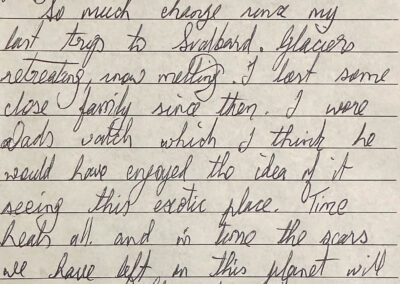 So much change since my
last trip to Svalbard. Glaciers
retreating, snow melting. I lost some
close family since then. I wore
Dads watch which I think he
would have enjoyed the idea of it
seeing this exotic place. Time
heals all and in time the scars
we have left in this planet will